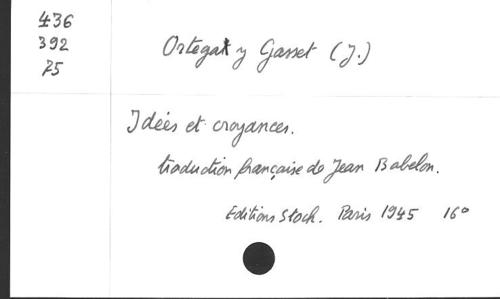 436
392
75
Ortega y Gasset (J.)
Idées et croyances.
traduction française de Jean Babelon.
Editions Stock. Paris 1945 16°